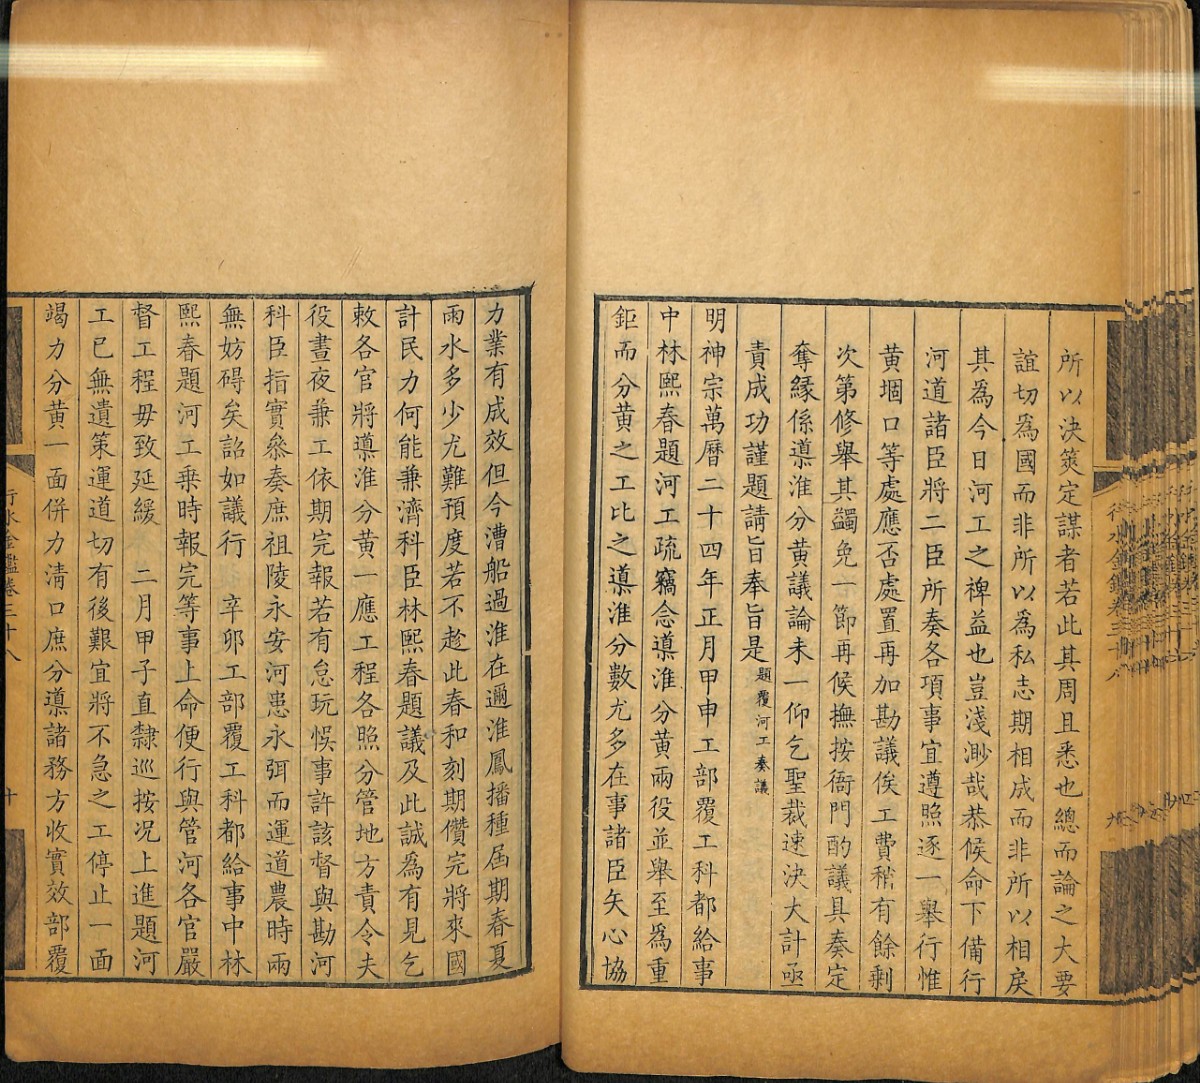 所以決筴定謀者若此其周且悉也總而論之大要
誼切為國而非所以為私志期相成而非所以相戾
其為今日河工之裨益也豈淺渺哉恭候命下備行
河道諸臣將二臣所奏各項事宜遵照逐一舉行惟
黃堌口等處應否處置再加勘議俟工費稍有餘剩
次第修舉其蠲免一節再候撫按衙門酌議具奏定
奪緣係導淮分黃議論未一仰乞聖裁速決大計亟
責成功謹題請旨奉旨是題覆河工奏議
明神宗萬曆二十四年正月甲申工部覆工科都給事
中林熙春題河工疏竊念導淮分黃兩役並舉至為重
鉅而分黃之工比之導淮分數尤多在事諸臣矢心協
力業有成效但今漕船過淮在邇淮鳳播種屆期春夏
雨水多少尤難預度若不趁此春和刻期儹完將來國
計民力何能兼濟科臣林熙春題議及此誠為有見乞
敕各官將導淮分黃一應工程各照分管地方責令夫
役晝夜兼工依期完報若有怠玩悞事許該督與勘河
科臣指實叅奏庶祖陵永安河患永弭而運道農時兩
無妨碍矣詔如議行 辛卯工部覆工科都給事中林
熙春題河工乗時報完等事上命便行與管河各官嚴
督工程毋致延緩 二月甲子直隸巡按况上進題河
工已無遺策運道切有後艱宜將不急之工停止一面
竭力分黃一面併力清口庶分導諸務方收實效部覆
行水金鑑卷三十八
十